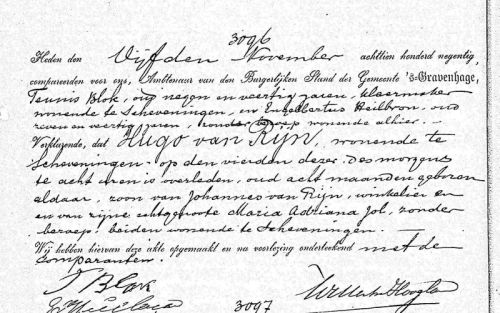 3096
Heden den Vijfden November achttien honderd negentig,
compareerden voor ons, Ambtenaar van den Burgerlijken Stand der Gemeente 's-Gravenhage,
Teunis Blok, oud negen en veertig jaren, kleermaker
wonende te Scheveningen, en Engelbertus Heilbron, oud
zeven en veertig jaren, zonder beroep wonende alhier.-
Verklarende, dat Hugo van Rijn, wonende te
Scheveningen - op den vierden dezer des morgens
te acht uren is overleden, oud acht maanden geboren
aldaar, zoon van Johannes van Rijn, winkelier en
en van zijne echtgenote Maria Adriana Jol, zonder
beroep, beiden wonende te Scheveningen.
Wij hebben hiervan deze akte opgemaakt en na voorlezing onderteekend met de
Comparanten.
T Blok
3097